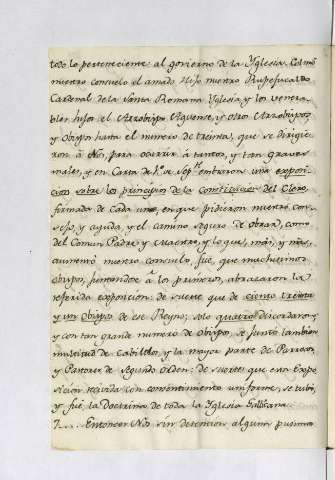 todo lo perteneciente al govierno de la Yglesia. Colmó
nuestro consuelo el amado Hijo nuestro Rupefucaldo
Cardenal de la Santa Romana Yglesia, y los venera-
bles hijos el Arzobispo Aquense, y otros Arzobispos
y Obispos hasta el numero de treinta, que se dirigie-
ron à Nos, para ocurrir à tantos, y tan graves
males, y en Carta de embiaron una exposi-
cion sobre los principios de la Constitucion del Clero,
firmada de Cada uno, en que pidieron nuestro con-
sejo, y ayuda, y el camino seguro de obrar, como
del Comun Padre, y Maestro, y lo que, más, y más,
aumentó nuestro consuelo, fue, que muchisimos
Obispos, juntandose à los primeros, abrazaron la
referida exposicion: de suerte que de ciento treinta
y un Obispos de ese Reyno, solo quatro discordaron,
y con tan grande numero de Obispos, se juntó tambien
multitud de Cabildos, y la mayor parte de Parrocos,
y Pastores de Segundo orden: De suerte que esta Expo-
sicion recivida con consentimiento uniforme, se tubo,
y fué la Doctrina de toda la Yglesia Galicana
7.... Entonces Nos sin detencion alguna pusimos